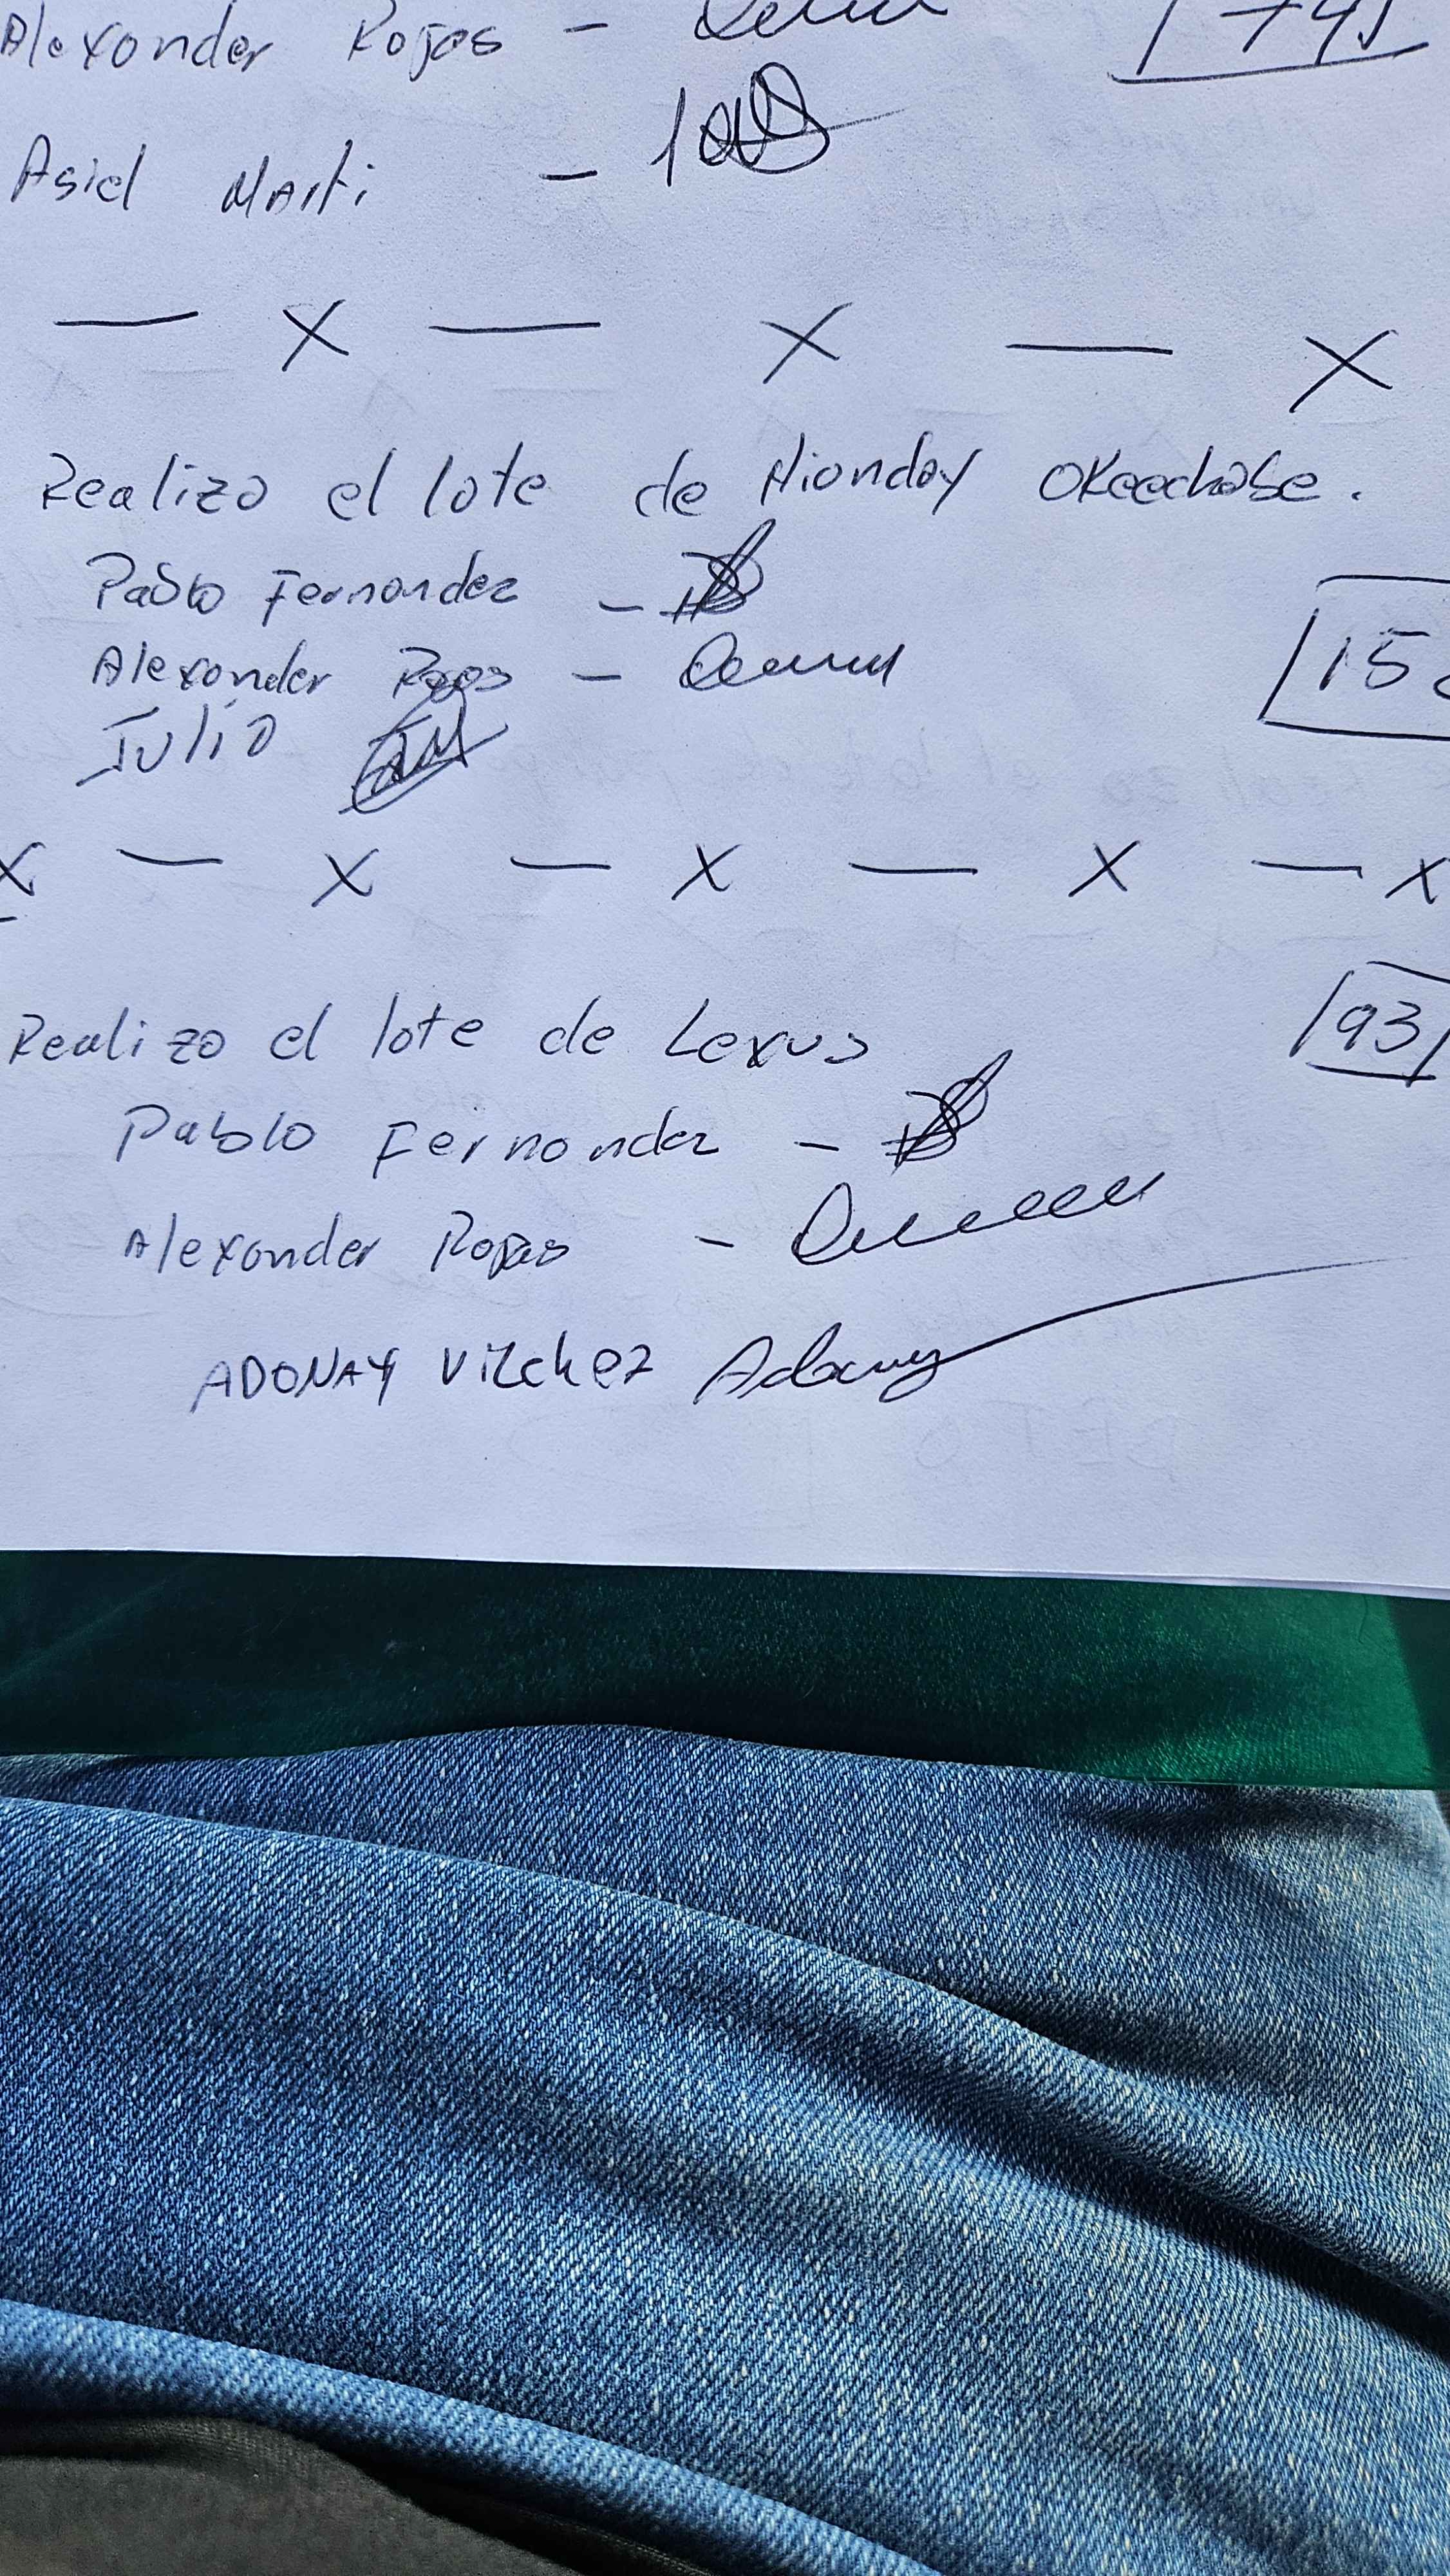 Alexander Rojas - 74
Asiel Marti -
— X — X — X
Realizo el lote de Hionday Okeechobe.
Pablo Fernandez -
Alexander Rojas - 15
Julio
X — X — X — X — X
Realizo el lote de Lexus 93
Pablo Fernandez -
Alexander Rojas -
ADONAY Vilchez Adonay